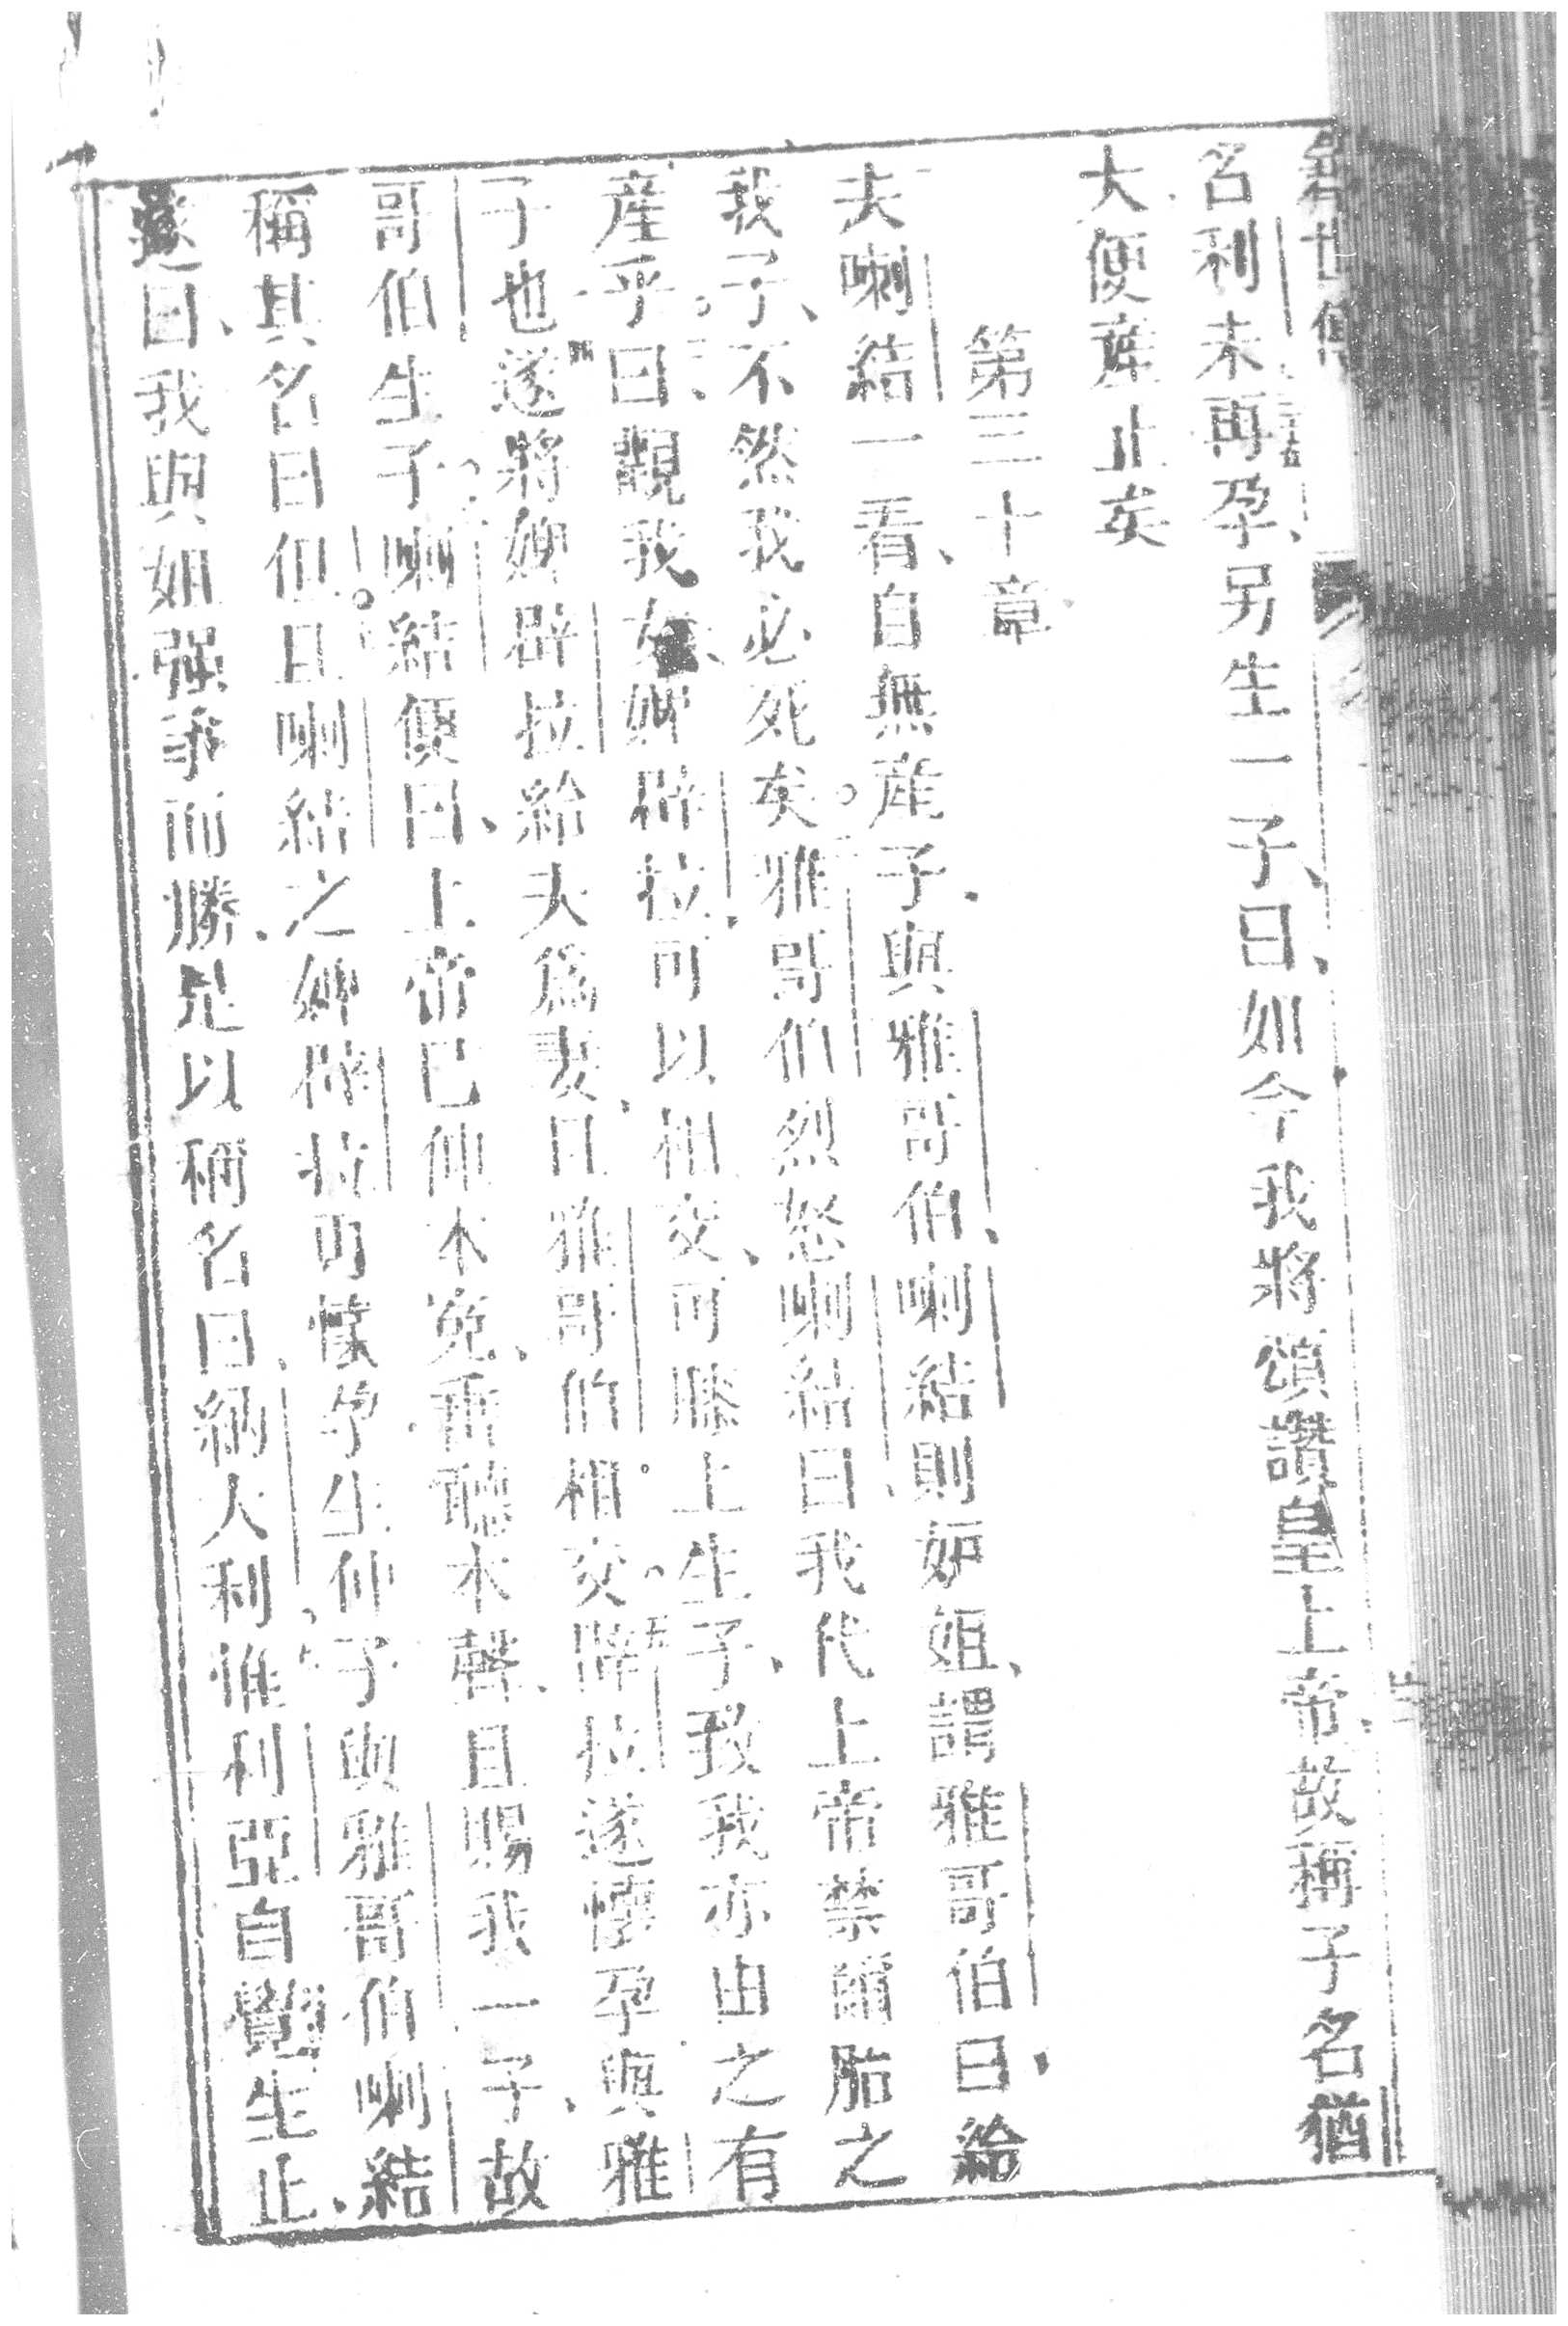 創世傳
名利未再孕、另生一子、曰、如今我將頌讚皇上帝、故稱子名猶
大便產止矣
第三十章
夫喇結一看、自無產子、與雅哥伯、喇結則妬姐、謂雅哥伯曰、給
我子、不然我必死矣。雅哥伯烈怒喇結曰、我代上帝禁爾胎之
產乎。曰、觀我女婢辟拉、可以相交、可膝上生子、致我亦由之有
子也、遂將婢辟拉給夫爲妻、且雅哥伯相交。辟拉遂懷孕、與雅
哥伯生子。喇結便曰、上帝已伸本冤、垂聽本聲、且賜我一子、故
稱其名曰但。且喇結之婢辟拉再懷孕、生仲子與雅哥伯、喇結
遂曰、我與姐强爭而勝、是以稱名曰、納大利、惟利亞自覺生止、